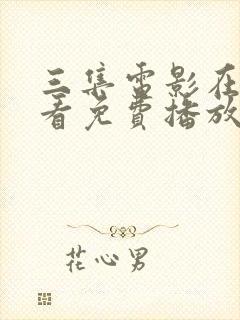 三集电影在
看免费播放
花心男